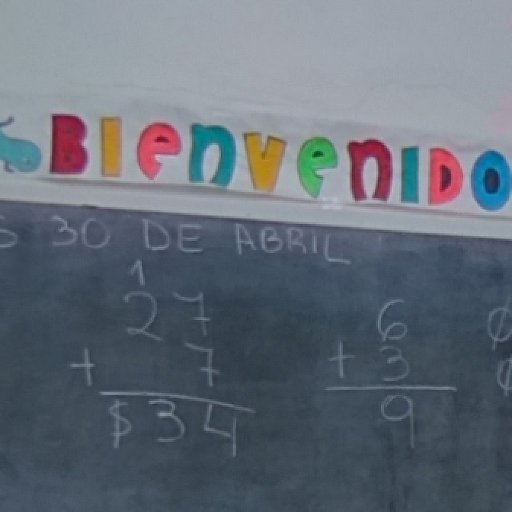 BIenvenIDO
S 30 DE ABRIL
1
27 6
+ 7 + 3
$34 9